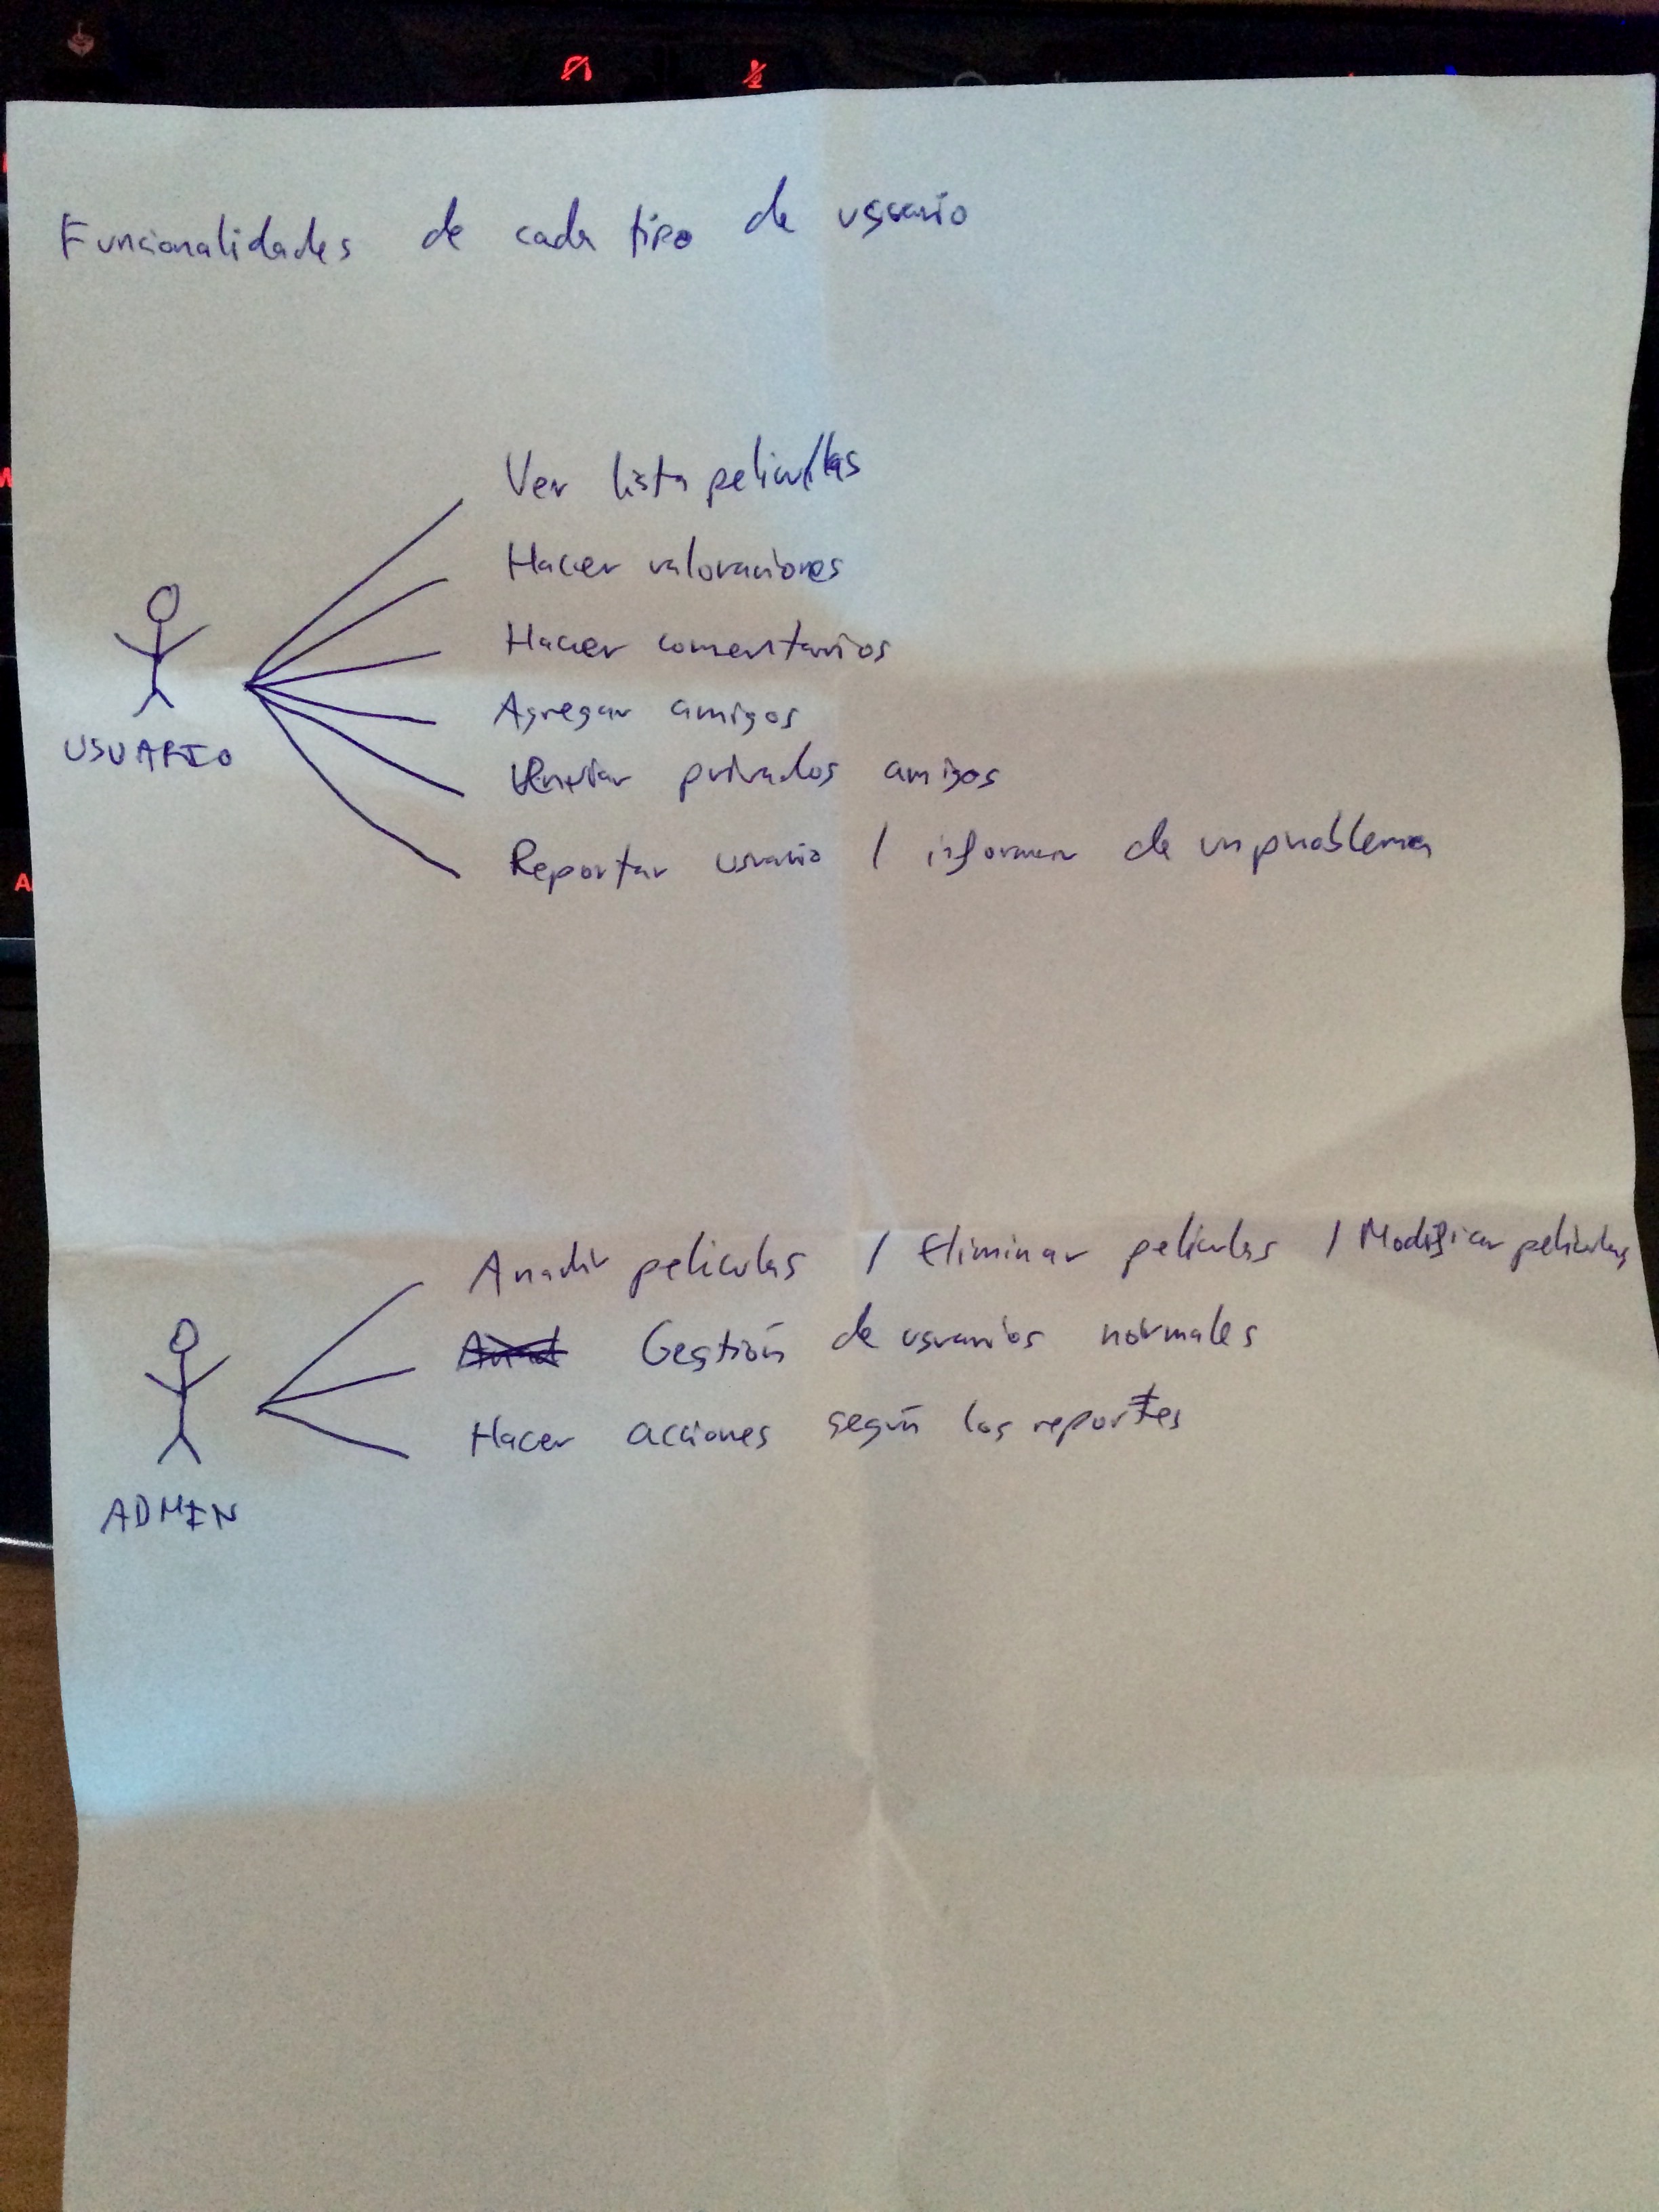 Funcionalidades de cada tipo de usuario
Ver lista peliculas
Hacer valoraciones
Hacer comentarios
Agregar amigos
Enviar privados amigos
Reportar usuario / informar de un problema
USUARIO
Anadir peliculas / Eliminar peliculas / Modificar peliculas
Gestión de usuarios normales
Hacer acciones según los reportes
ADMIN